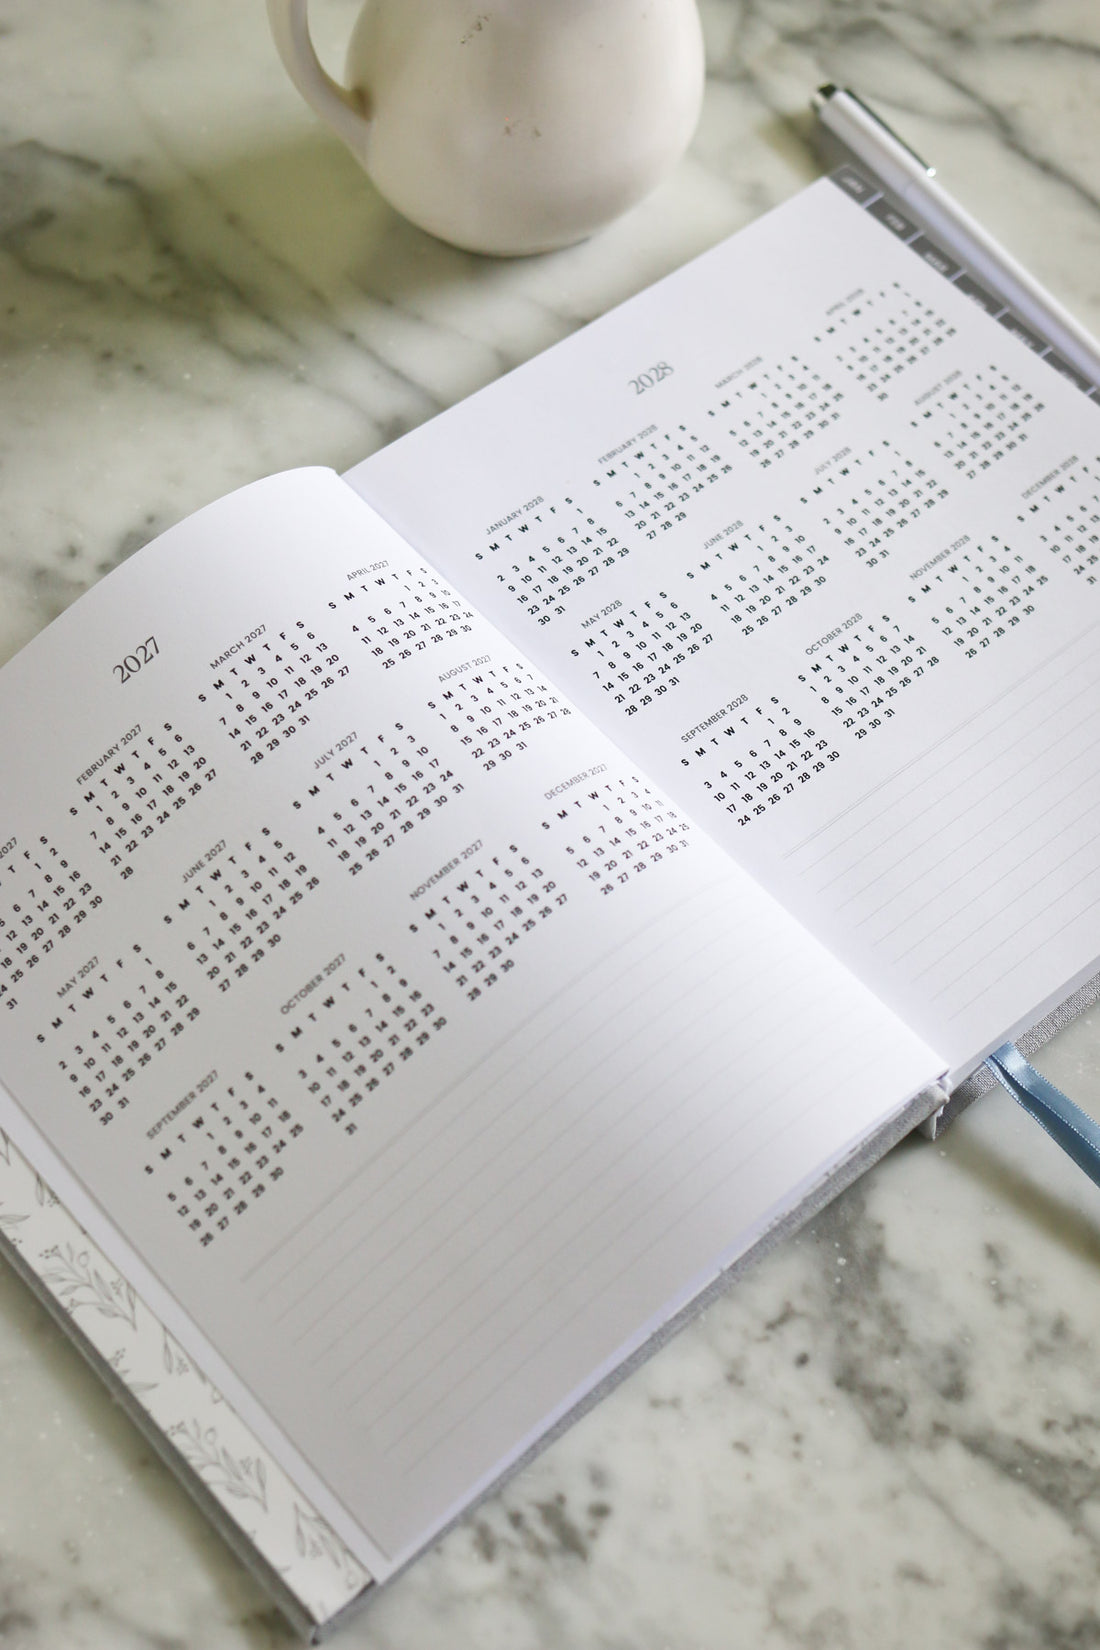 2027
2027
T F S
1 2
5 6 7 8 9
12 13 14 15 16
18 19 20 21 22 23
24 25 26 27 28 29 30
31
FEBRUARY 2027
S M T W T F S
1 2 3 4 5 6
7 8 9 10 11 12 13
14 15 16 17 18 19 20
21 22 23 24 25 26 27
28
MARCH 2027
S M T W T F S
1 2 3 4 5 6
7 8 9 10 11 12 13
14 15 16 17 18 19 20
21 22 23 24 25 26 27
28 29 30 31
APRIL 2027
S M T W T F S
1 2 3
4 5 6 7 8 9 10
11 12 13 14 15 16 17
18 19 20 21 22 23 24
25 26 27 28 29 30
MAY 2027
S M T W T F S
1
2 3 4 5 6 7 8
9 10 11 12 13 14 15
16 17 18 19 20 21 22
23 24 25 26 27 28 29
30 31
JUNE 2027
S M T W T F S
1 2 3 4 5
6 7 8 9 10 11 12
13 14 15 16 17 18 19
20 21 22 23 24 25 26
27 28 29 30
JULY 2027
S M T W T F S
1 2 3
4 5 6 7 8 9 10
11 12 13 14 15 16 17
18 19 20 21 22 23 24
25 26 27 28 29 30 31
AUGUST 2027
S M T W T F S
1 2 3 4 5 6 7
8 9 10 11 12 13 14
15 16 17 18 19 20 21
22 23 24 25 26 27 28
29 30 31
SEPTEMBER 2027
S M T W T F S
1 2 3 4
5 6 7 8 9 10 11
12 13 14 15 16 17 18
19 20 21 22 23 24 25
26 27 28 29 30
OCTOBER 2027
S M T W T F S
1 2
3 4 5 6 7 8 9
10 11 12 13 14 15 16
17 18 19 20 21 22 23
24 25 26 27 28 29 30
31
NOVEMBER 2027
S M T W T F S
1 2 3 4 5 6
7 8 9 10 11 12 13
14 15 16 17 18 19 20
21 22 23 24 25 26 27
28 29 30
DECEMBER 2027
S M T W T F S
1 2 3 4
5 6 7 8 9 10 11
12 13 14 15 16 17 18
19 20 21 22 23 24 25
26 27 28 29 30 31
2028
JANUARY 2028
S M T W T F S
1
2 3 4 5 6 7 8
9 10 11 12 13 14 15
16 17 18 19 20 21 22
23 24 25 26 27 28 29
30 31
FEBRUARY 2028
S M T W T F S
1 2 3 4 5
6 7 8 9 10 11 12
13 14 15 16 17 18 19
20 21 22 23 24 25 26
27 28 29
MARCH 2028
S M T W T F S
1 2 3 4
5 6 7 8 9 10 11
12 13 14 15 16 17 18
19 20 21 22 23 24 25
26 27 28 29 30 31
APRIL 2028
S M T W T F S
1
2 3 4 5 6 7 8
9 10 11 12 13 14 15
16 17 18 19 20 21 22
23 24 25 26 27 28 29
30
MAY 2028
S M T W T F S
1 2 3 4 5 6
7 8 9 10 11 12 13
14 15 16 17 18 19 20
21 22 23 24 25 26 27
28 29 30 31
JUNE 2028
S M T W T F S
1 2 3
4 5 6 7 8 9 10
11 12 13 14 15 16 17
18 19 20 21 22 23 24
25 26 27 28 29 30
JULY 2028
S M T W T F S
1
2 3 4 5 6 7 8
9 10 11 12 13 14 15
16 17 18 19 20 21 22
23 24 25 26 27 28 29
30 31
AUGUST 2028
S M T W T F S
1 2 3 4 5
6 7 8 9 10 11 12
13 14 15 16 17 18 19
20 21 22 23 24 25 26
27 28 29 30 31
SEPTEMBER 2028
S M T W T F S
1 2
3 4 5 6 7 8 9
10 11 12 13 14 15 16
17 18 19 20 21 22 23
24 25 26 27 28 29 30
OCTOBER 2028
S M T W T F S
1 2 3 4 5 6 7
8 9 10 11 12 13 14
15 16 17 18 19 20 21
22 23 24 25 26 27 28
29 30 31
NOVEMBER 2028
S M T W T F S
1 2 3 4
5 6 7 8 9 10 11
12 13 14 15 16 17 18
19 20 21 22 23 24 25
26 27 28 29 30
DECEMBER 2028
S M T W T
3 4 5 6 7
10 11 12 13
17 18 19
24 25
31